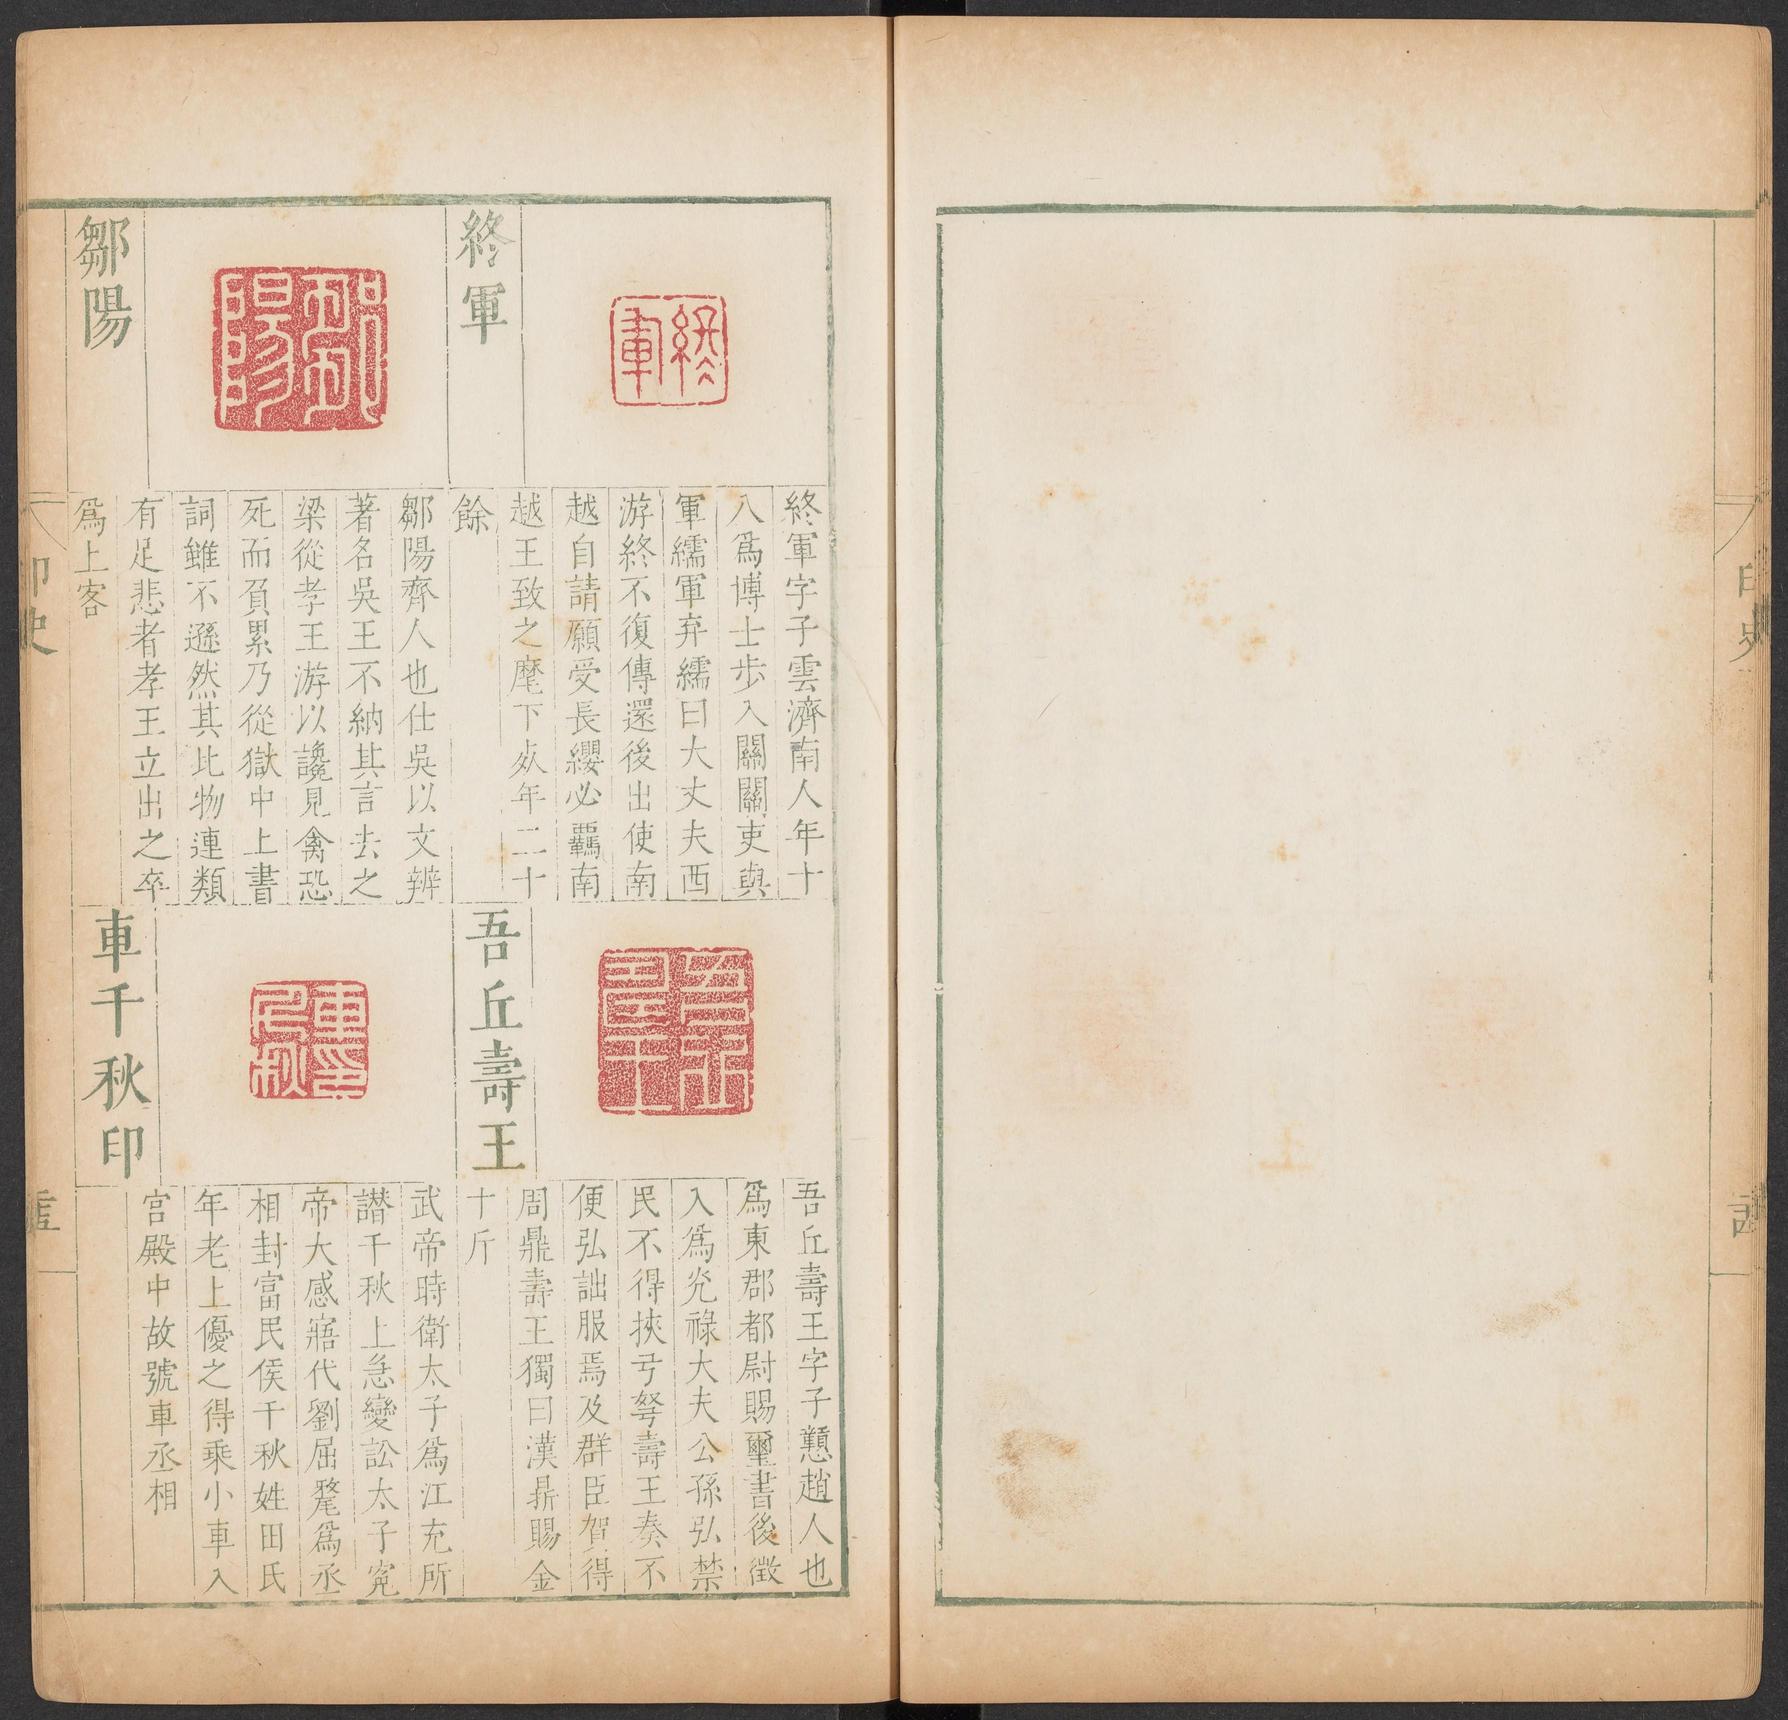 終軍
終軍字子雲濟南人年十
八爲博士步入關關吏與
軍繻軍弃繻曰大丈夫西
游終不復傳還後出使南
越自請願受長纓必羈南
越王致之麾下死年二十
餘
鄒陽
鄒陽齊人也仕吳以文辨
著名吳王不納其言去之
梁從孝王游以讒見禽恐
死而負累乃從獄中上書
詞雖不遜然其比物連類
有足悲者孝王立出之卒
爲上客
吾丘壽王
吾丘壽王字子戆趙人也
爲東郡都尉賜璽書後徵
入爲光祿大夫公孫弘禁
民不得挾弓弩壽王奏不
便弘詘服焉及群臣賀得
周鼎壽王獨曰漢鼎賜金
十斤
車千秋印
武帝時衛太子爲江充所
譖千秋上急變訟太子寃
帝大感寤代劉屈氂爲丞
相封富民侯千秋姓田氏
年老上優之得乘小車入
宫殿中故號車丞相
印史